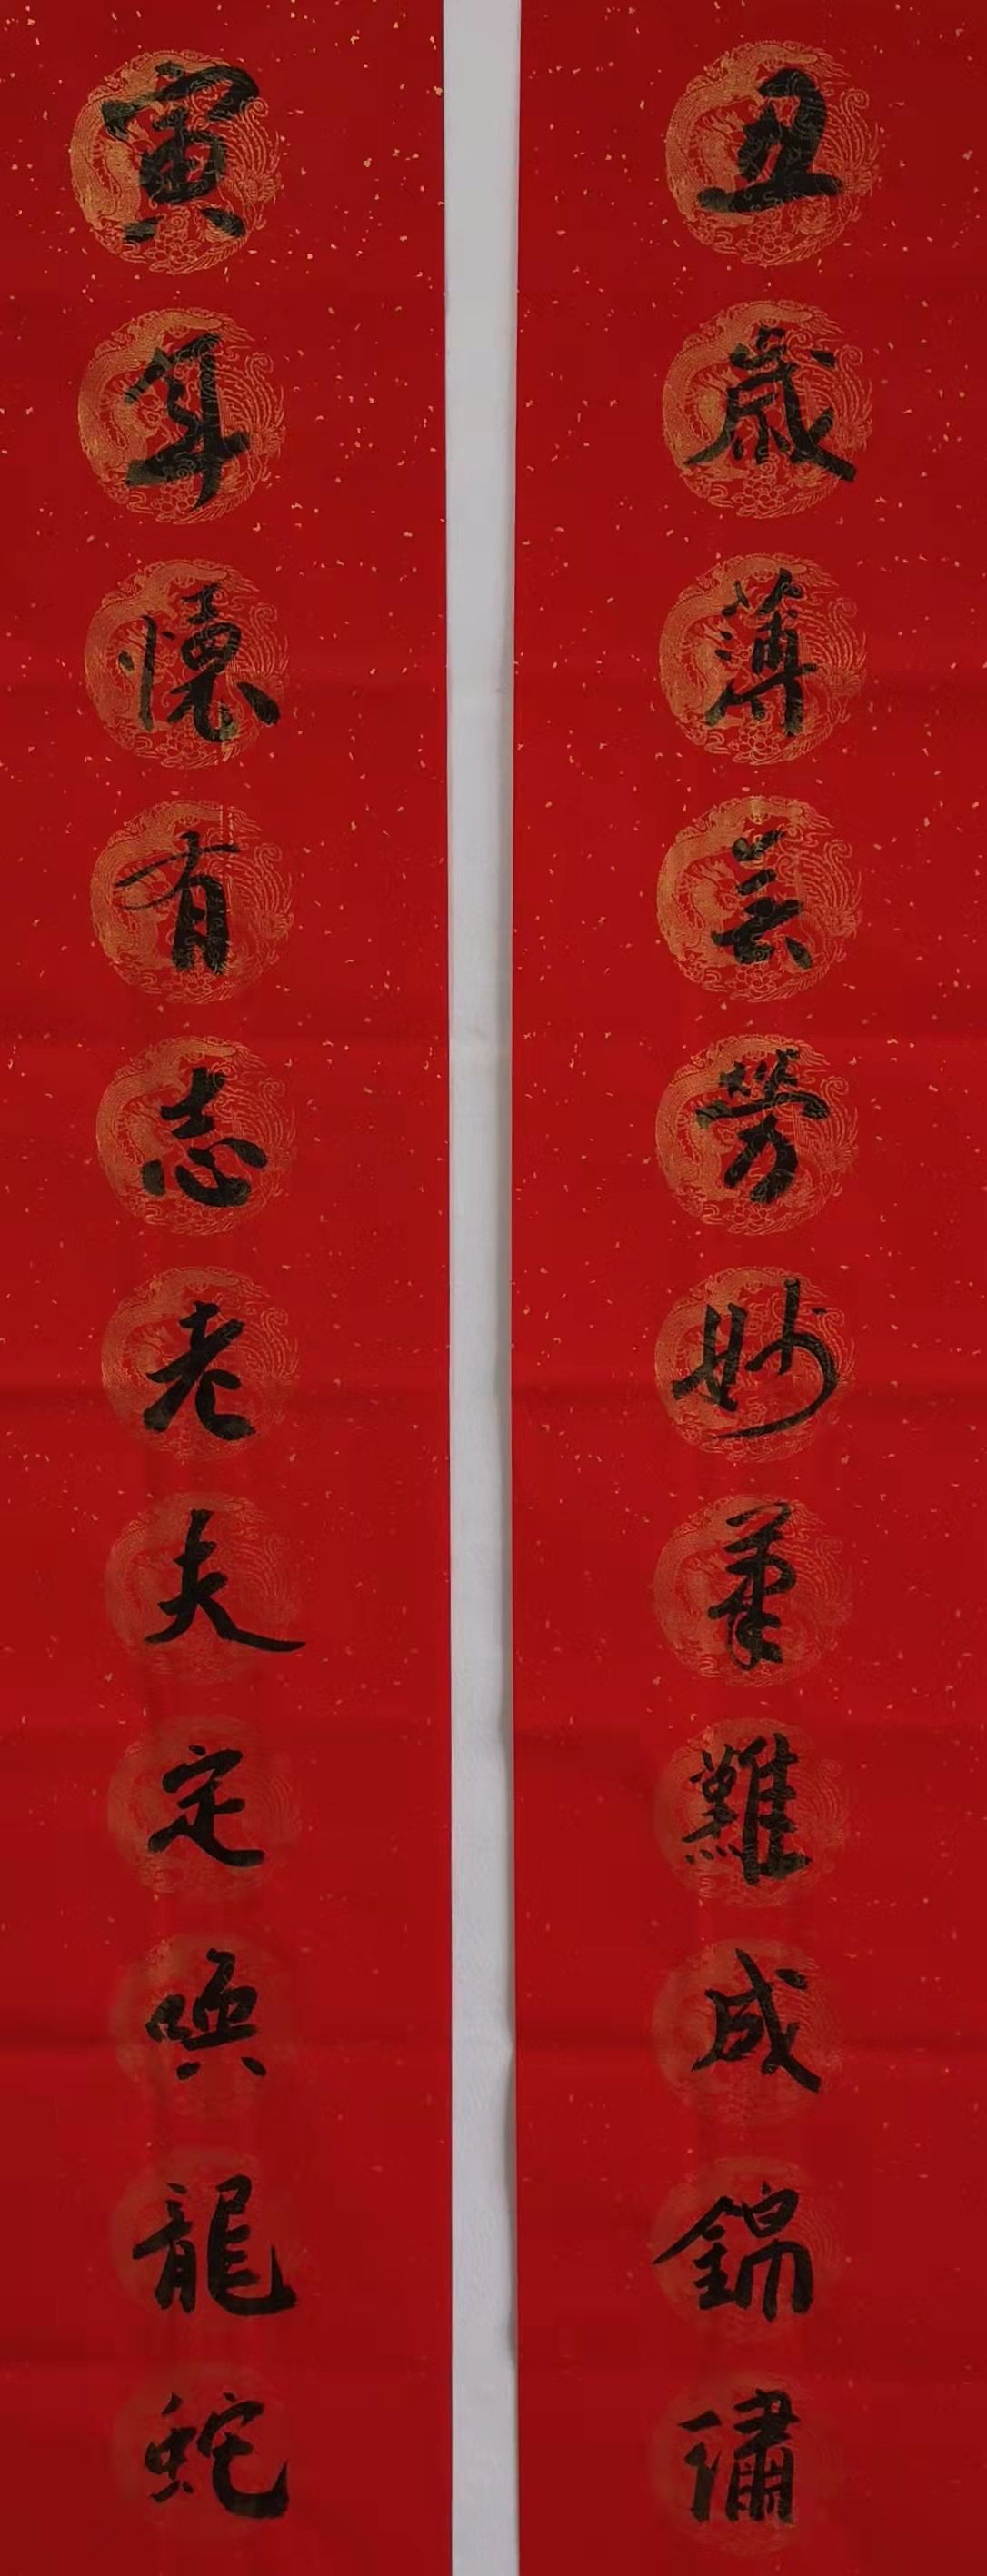 丑歲薄芸勞妙筆難成錦繡
寅年懷有志老夫定喚龍蛇